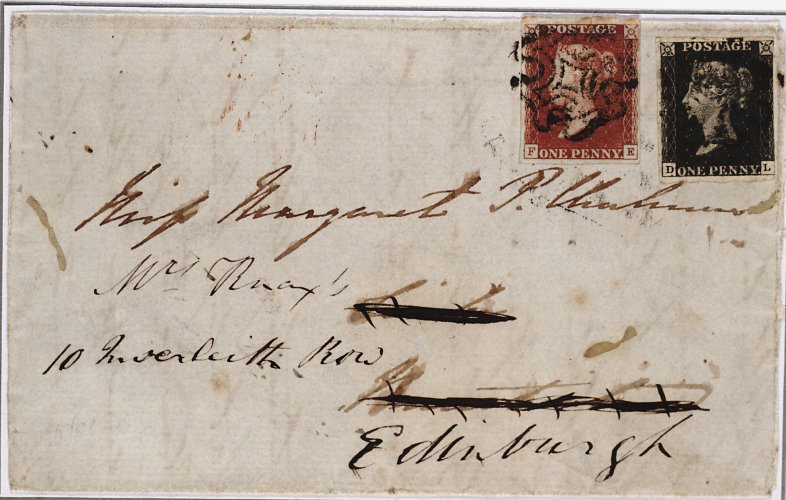 POSTAGE
F ONE PENNY E
POSTAGE
D ONE PENNY L
Miss Margaret P. Chalmers
Mrs Knox's
10 Inverleith Row
Edinburgh